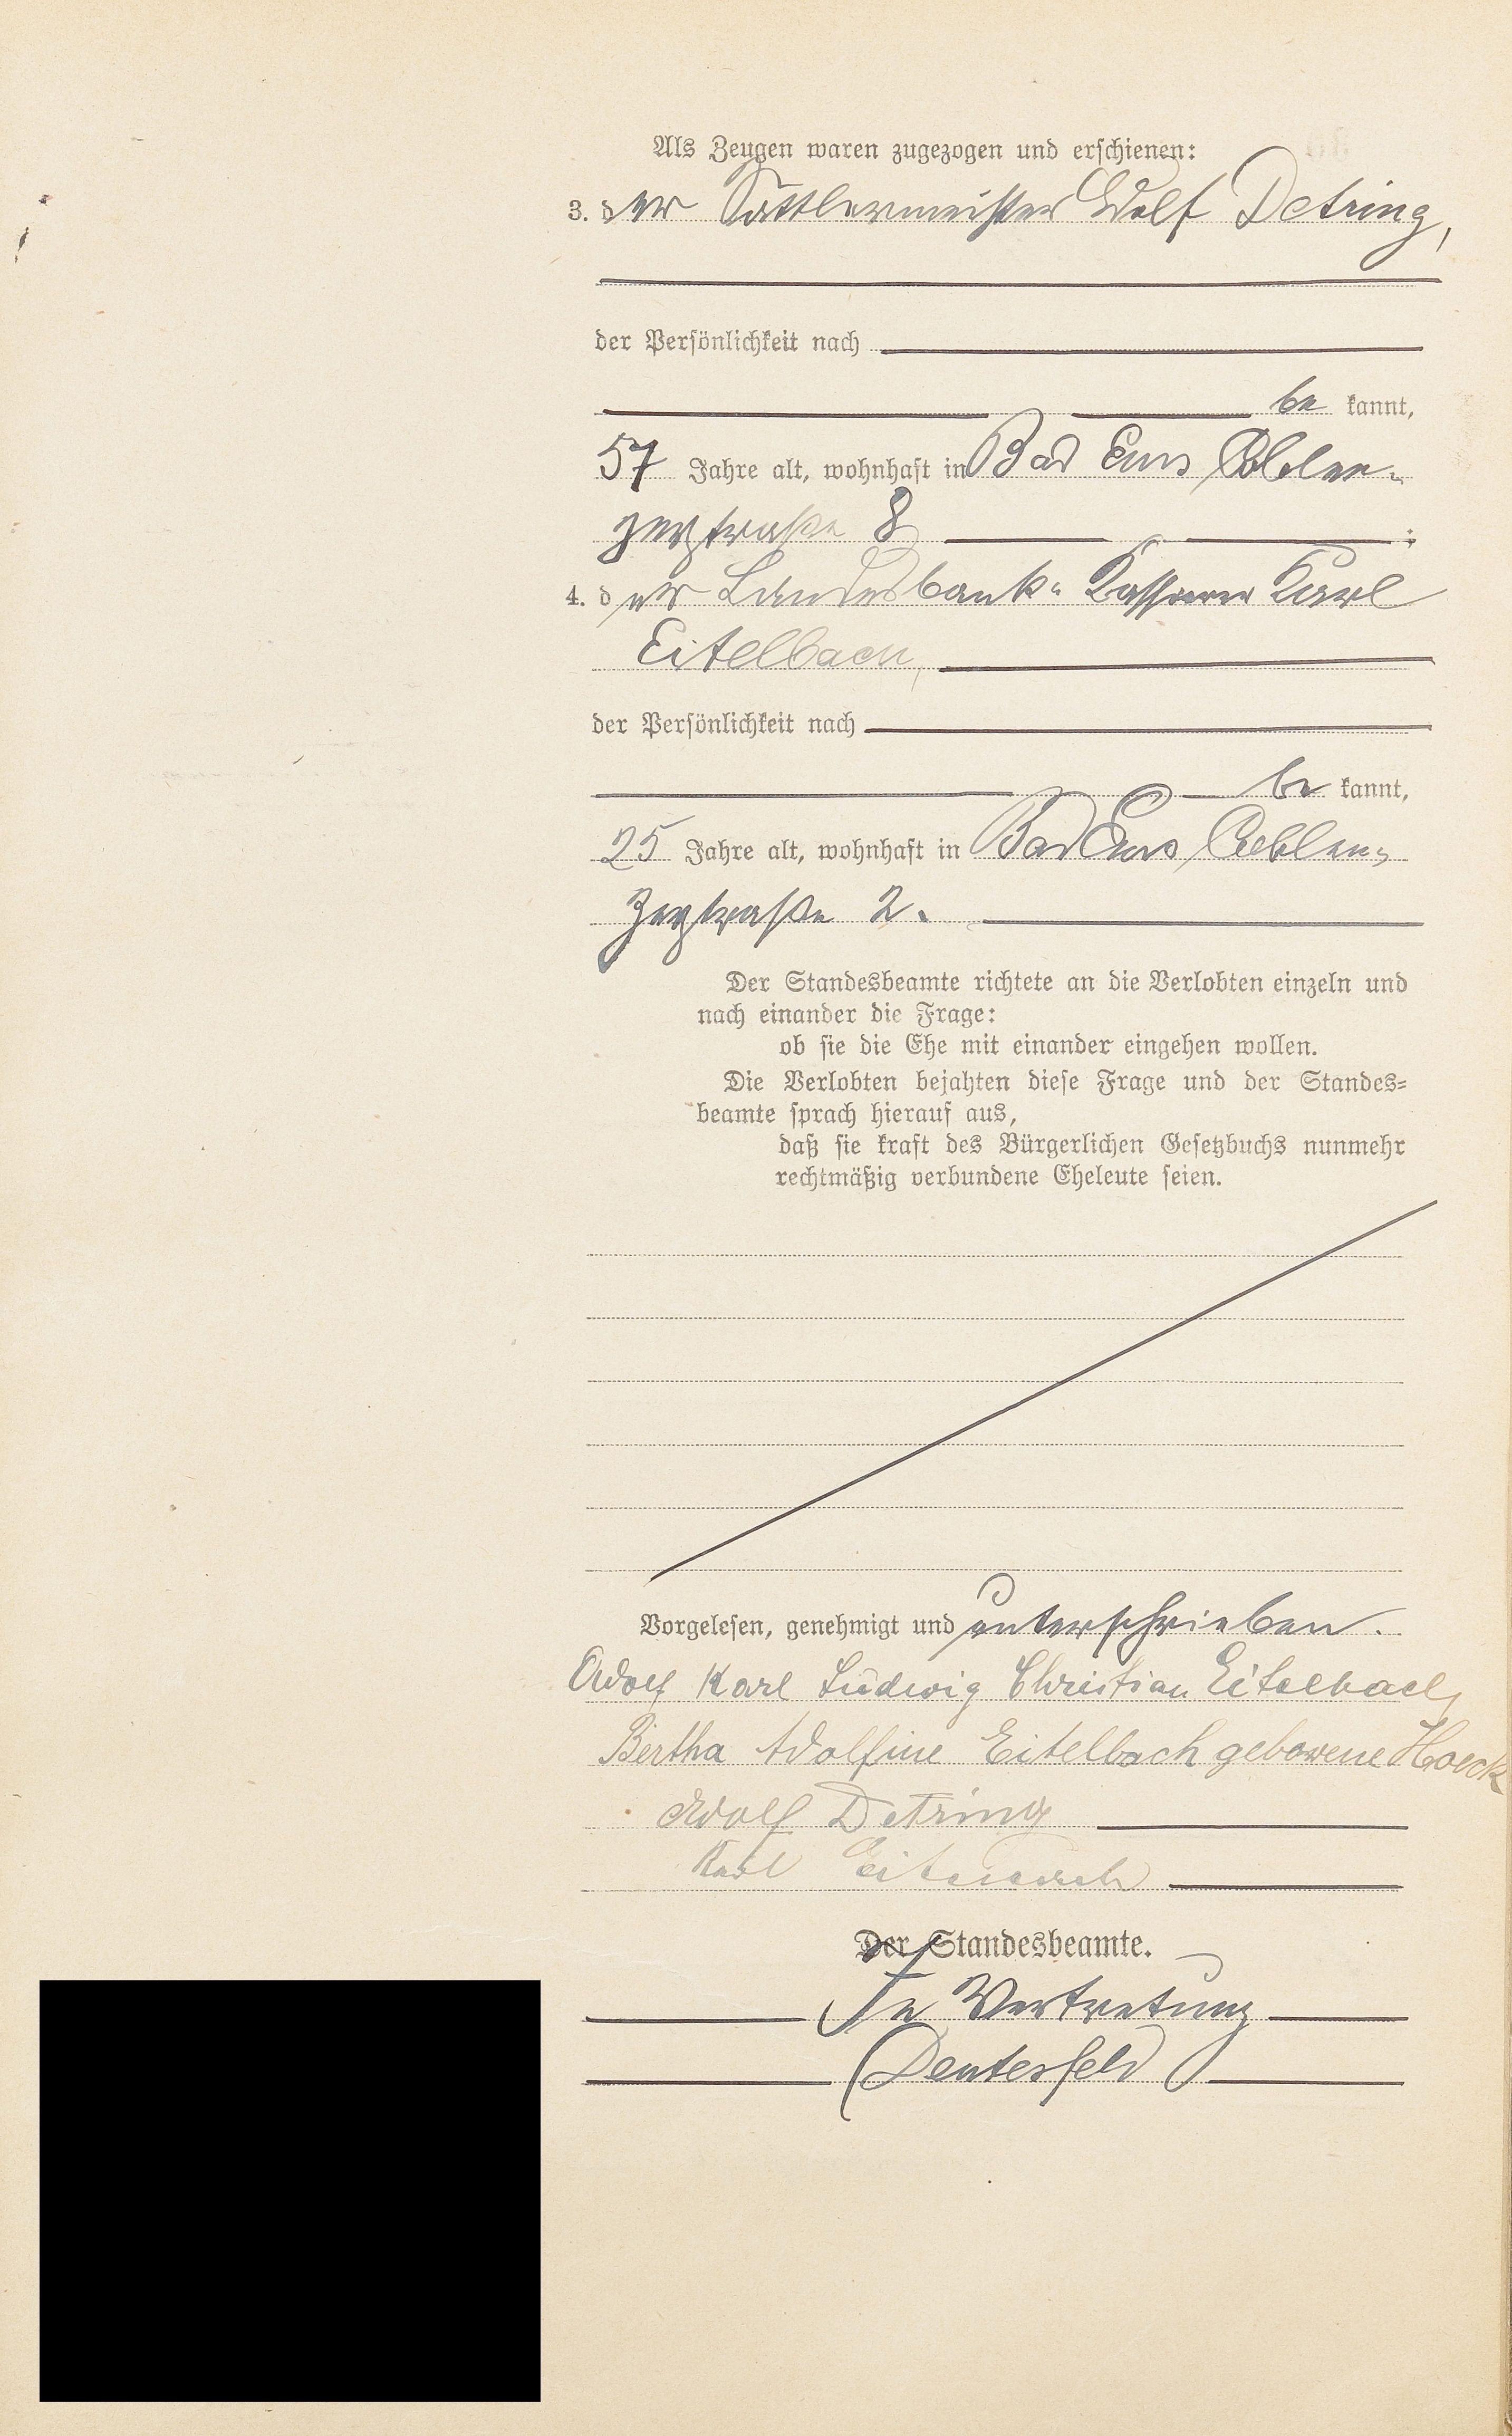 Als Zeugen waren zugezogen und erschienen:
3. der Sattlermeister Adolf Detring,
der Persönlichkeit nach
be kannt,
57 Jahre alt, wohnhaft in Bad Ems Coblen-
zerstraße 8 ;
4. der Landesbank- Kassierer Karl
Eitelbach,
der Persönlichkeit nach
be kannt,
25 Jahre alt, wohnhaft in Bad Ems Coblen-
zerstraße 2.
Der Standesbeamte richtete an die Verlobten einzeln und
nach einander die Frage:
ob sie die Ehe mit einander eingehen wollen.
Die Verlobten bejahten diese Frage und der Standes-
beamte sprach hierauf aus,
daß sie kraft des Bürgerlichen Gesetzbuchs nunmehr
rechtmäßig verbundene Eheleute seien.
Vorgelesen, genehmigt und unterschrieben.
Adolf Karl Ludwig Christian Eitelbach
Bertha Adolfine Eitelbach geborene Hoeck
Adolf Detring
Karl Eitelbach
Der Standesbeamte.
In Vertretung